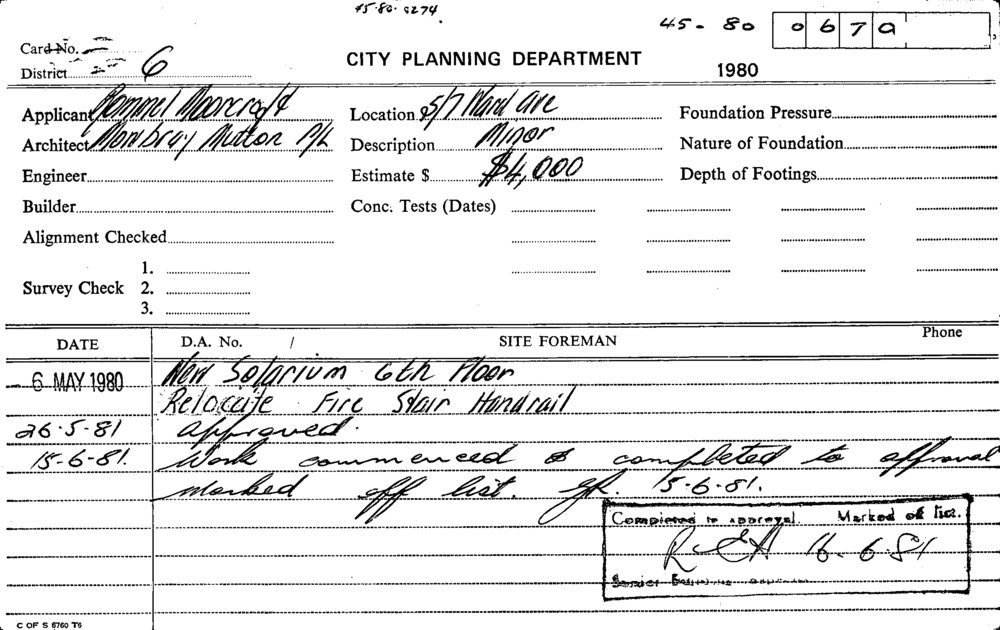 45-80-0274
45- 80 0670
Card No.
District 6
CITY PLANNING DEPARTMENT
1980
Applicant Moorcroft
Location 5/7 Ward Ave
Foundation Pressure
Architect Mowbray Mutton P/L
Description Minor
Nature of Foundation
Engineer
Estimate $ $4,000
Depth of Footings
Builder
Conc. Tests (Dates)
Alignment Checked
Survey Check
1.
2.
3.
DATE
D.A. No. /
SITE FOREMAN
Phone
- 6 MAY 1980 New Solarium 6th Floor
Relocate Fire Stair Handrail
26.5.81 approved.
15-6-81. Work commenced & completed to approval
marked off list. 15-6-81.
Completed to approval. Marked off list.
16-6-81
Senior
C OF S 6760 T6